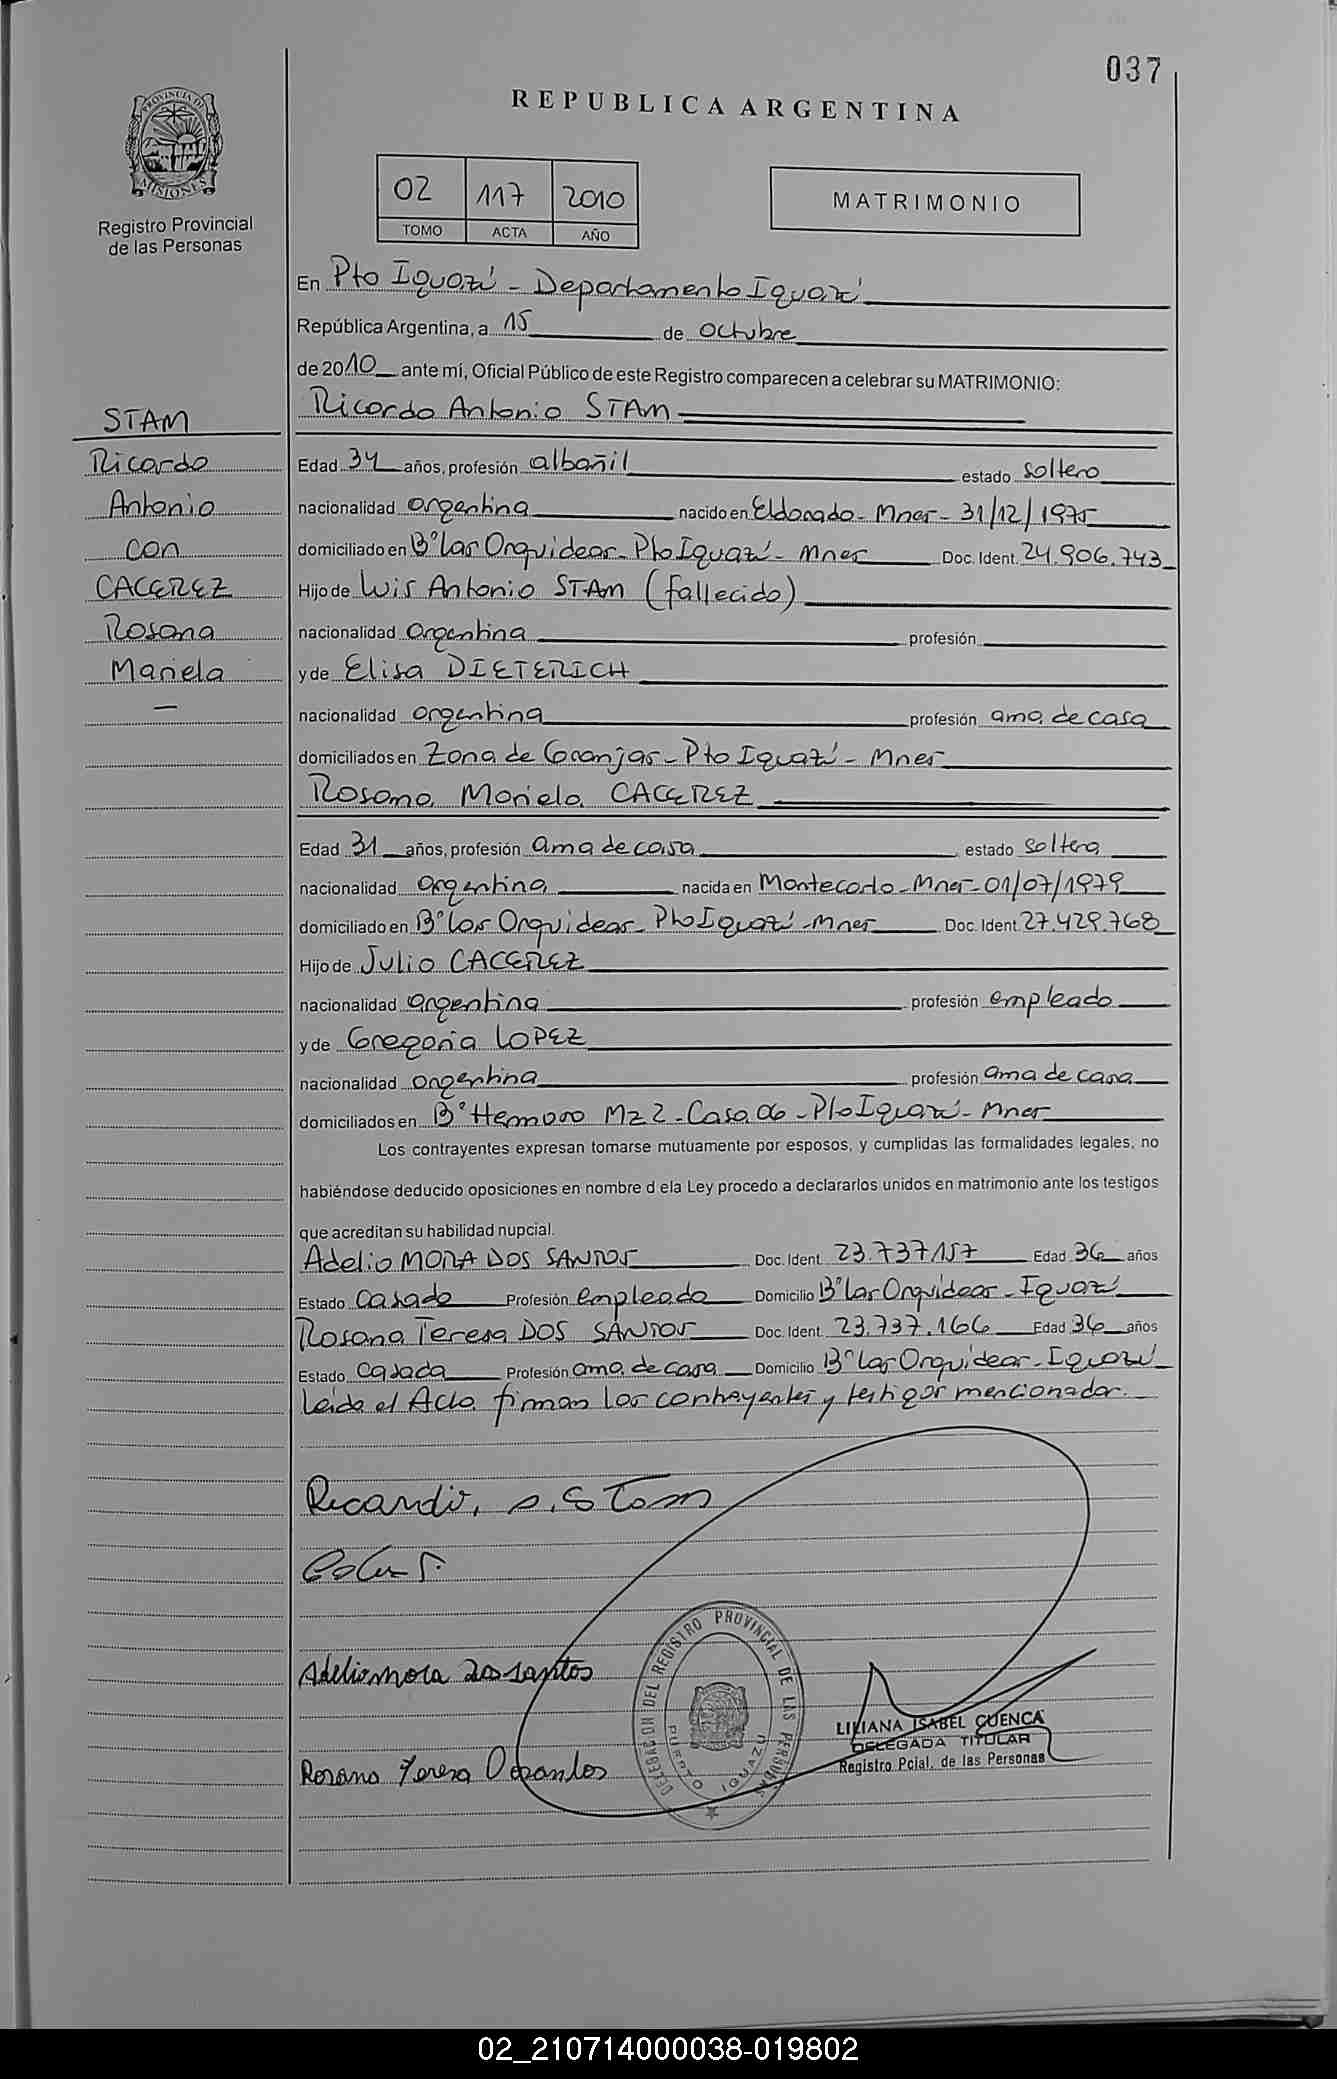 037
REPUBLICA ARGENTINA
PROVINCIA DE
MISIONES
Registro Provincial
de las Personas
02 117 2010
TOMO ACTA AÑO
MATRIMONIO
En Pto Iguazú - Departamento Iguazú
República Argentina, a 15 de octubre
de 2010 ante mí, Oficial Público de este Registro comparecen a celebrar su MATRIMONIO:
Ricardo Antonio STAM
STAM
Ricardo
Antonio
con
CACEREZ
Rosana
Mariela
—
Edad 34 años, profesión albañil estado soltero
nacionalidad argentina nacido en Eldorado - Mnes - 31/12/1975
domiciliado en B° las Orquideas - Pto Iguazú - Mnes Doc. Ident. 24.906.743
Hijo de Luis Antonio STAM (fallecido)
nacionalidad argentina profesión
y de Elisa DIETERICH
nacionalidad argentina profesión ama de casa
domiciliados en Zona de Granjas - Pto Iguazú - Mnes
Rosana Mariela CACEREZ
Edad 31 años, profesión ama de casa estado soltera
nacionalidad argentina nacida en Montecarlo - Mnes - 01/07/1979
domiciliado en B° las Orquideas - Pto Iguazú - Mnes Doc. Ident. 27.429.768
Hijo de Julio CACEREZ
nacionalidad argentina profesión empleado
y de Gregoria LOPEZ
nacionalidad argentina profesión ama de casa
domiciliados en B° Hermoso Mz 2 - Casa 06 - Pto Iguazú - Mnes
Los contrayentes expresan tomarse mutuamente por esposos, y cumplidas las formalidades legales, no
habiéndose deducido oposiciones en nombre d ela Ley procedo a declararlos unidos en matrimonio ante los testigos
que acreditan su habilidad nupcial.
Adelio MORA DOS SANTOS Doc. Ident. 23.737.157 Edad 36 años
Estado Casado Profesión empleado Domicilio B° las Orquídeas - Iguazú
Rosana Teresa DOS SANTOS Doc. Ident. 23.737.166 Edad 36 años
Estado Casada Profesión ama de casa Domicilio B° las Orquídeas - Iguazú
Leída el Acta firman los contrayentes y testigos mencionados.
Ricardo, A. STam
Adelio mora dos santos
Rosana Teresa
DELEGACION DEL REGISTRO PROVINCIAL DE LAS PERSONAS
PUERTO IGUAZU
LILIANA ISABEL CUENCA
DELEGADA TITULAR
Registro Pcial. de las Personas
02_210714000038-019802